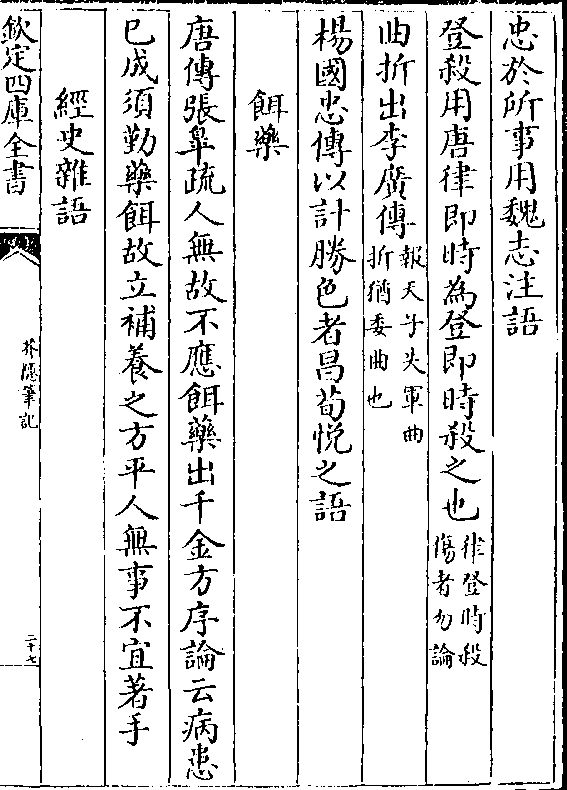 忠於所事用魏志注語
登殺用唐律即時為登即時殺之也律登時殺
傷者勿論
曲折出李廣傳報天子失軍曲
折猶委曲也
楊國忠傳以計勝色者昌荀悦之語
餌藥
唐傳張臯疏人無故不應餌藥出千金方序論云病患
已成須勤藥餌故立補養之方平人無事不宜著手
經史雜語
欽定四庫全書
芥隱筆記
二十七